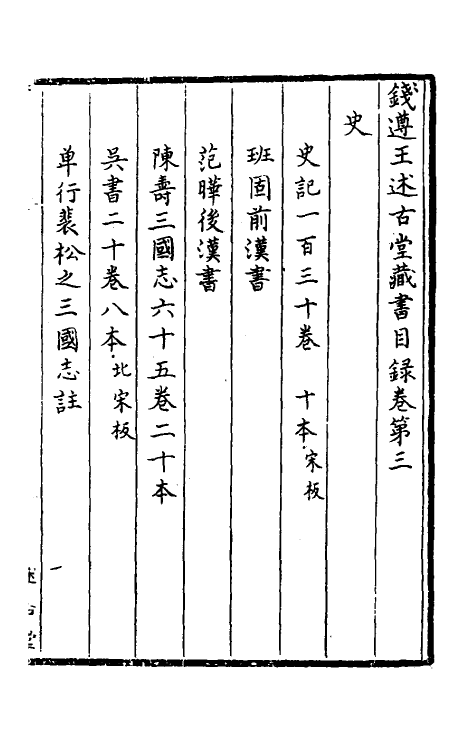 錢遵王述古堂藏書目録卷第三
史
史記一百三十卷 十本 宋板
班固前漢書
范曄後漢書
陳壽三國志六十五卷二十本
吳書二十卷八本 北宋板
单行裴松之三國志註
一
述古堂